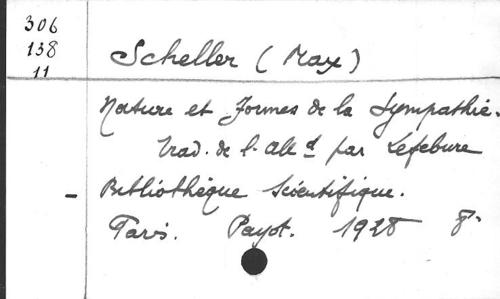 306
138
11
Scheller (Max)
Nature et Formes de la Sympathie.
trad. de l'alld par Lefebure
- Bibliothèque Scientifique.
Paris. Payot. 1928 8°